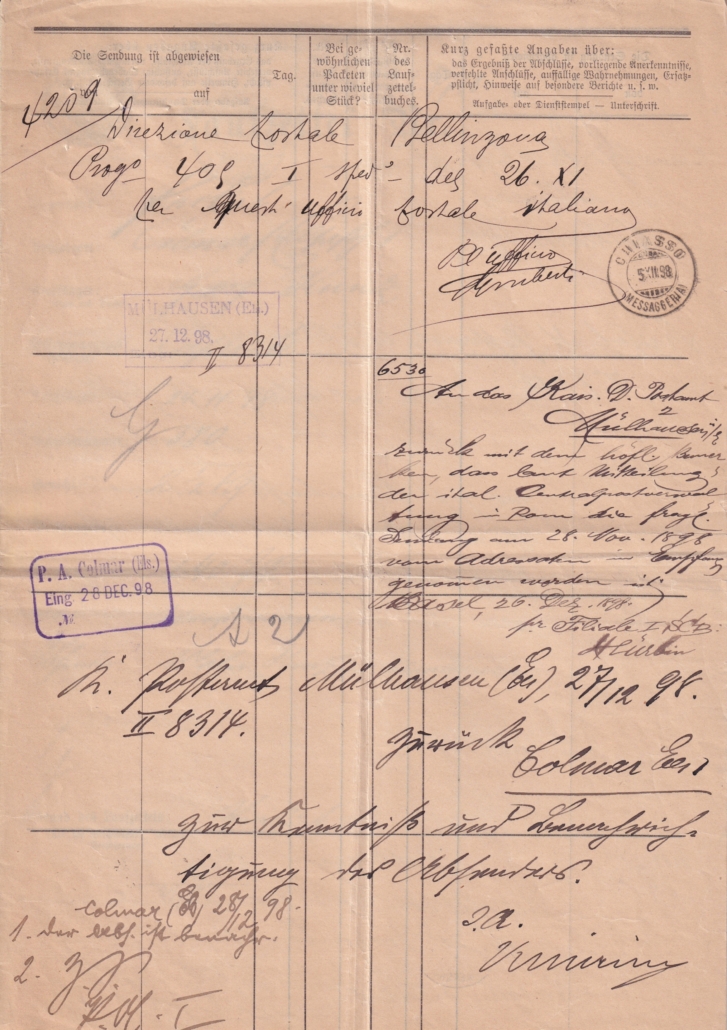 Die Sendung ist abgewiesen
auf
Tag.
Bei ge-
wöhnlichen
Packeten
unter wieviel
Stück?
Nr.
des
Lauf-
zettel-
buches.
Kurz gefaßte Angaben über:
das Ergebniß der Abschlüsse, vorliegende Anerkenntnisse,
verfehlte Anschlüsse, auffällige Wahrnehmungen, Ersatz-
pflicht, Hinweise auf besondere Berichte u. s. w.
Aufgabe- oder Dienststempel — Unterschrift.
4209
Direzione Postale Bellinzona
Progo 409 I del 26. XI
per quest' uffici postale italiano
ufficio
CHIASSO
5 XII 98
(MESSAGGERIA)
MÜLHAUSEN (Els.)
27. 12. 98.
II 8314
6530
An das Kais. D. Postamt
2
Mülhausen i/E
zurück mit dem höfl. Bemer
ken, dass laut Mitteilung
der ital. Centralpostverwal
tung in Rom die fragl.
Sendung am 28. Nov. 1898
vom Adressaten in Empfang
genommen worden ist.
Basel, 26. Dez. 1898.
pr Filiale
P. A. Colmar (Els.)
Eing 28 DEC. 98
№
A 2
K. Postamt Mülhausen (Els), 27/12 98.
II 8314.
zurück
Colmar Els
zur Kenntniß und Benachrich-
tigung des Absenders.
I. A.
Colmar (Els) 28/12 98.
1. der Abs. ist benachr.
2.